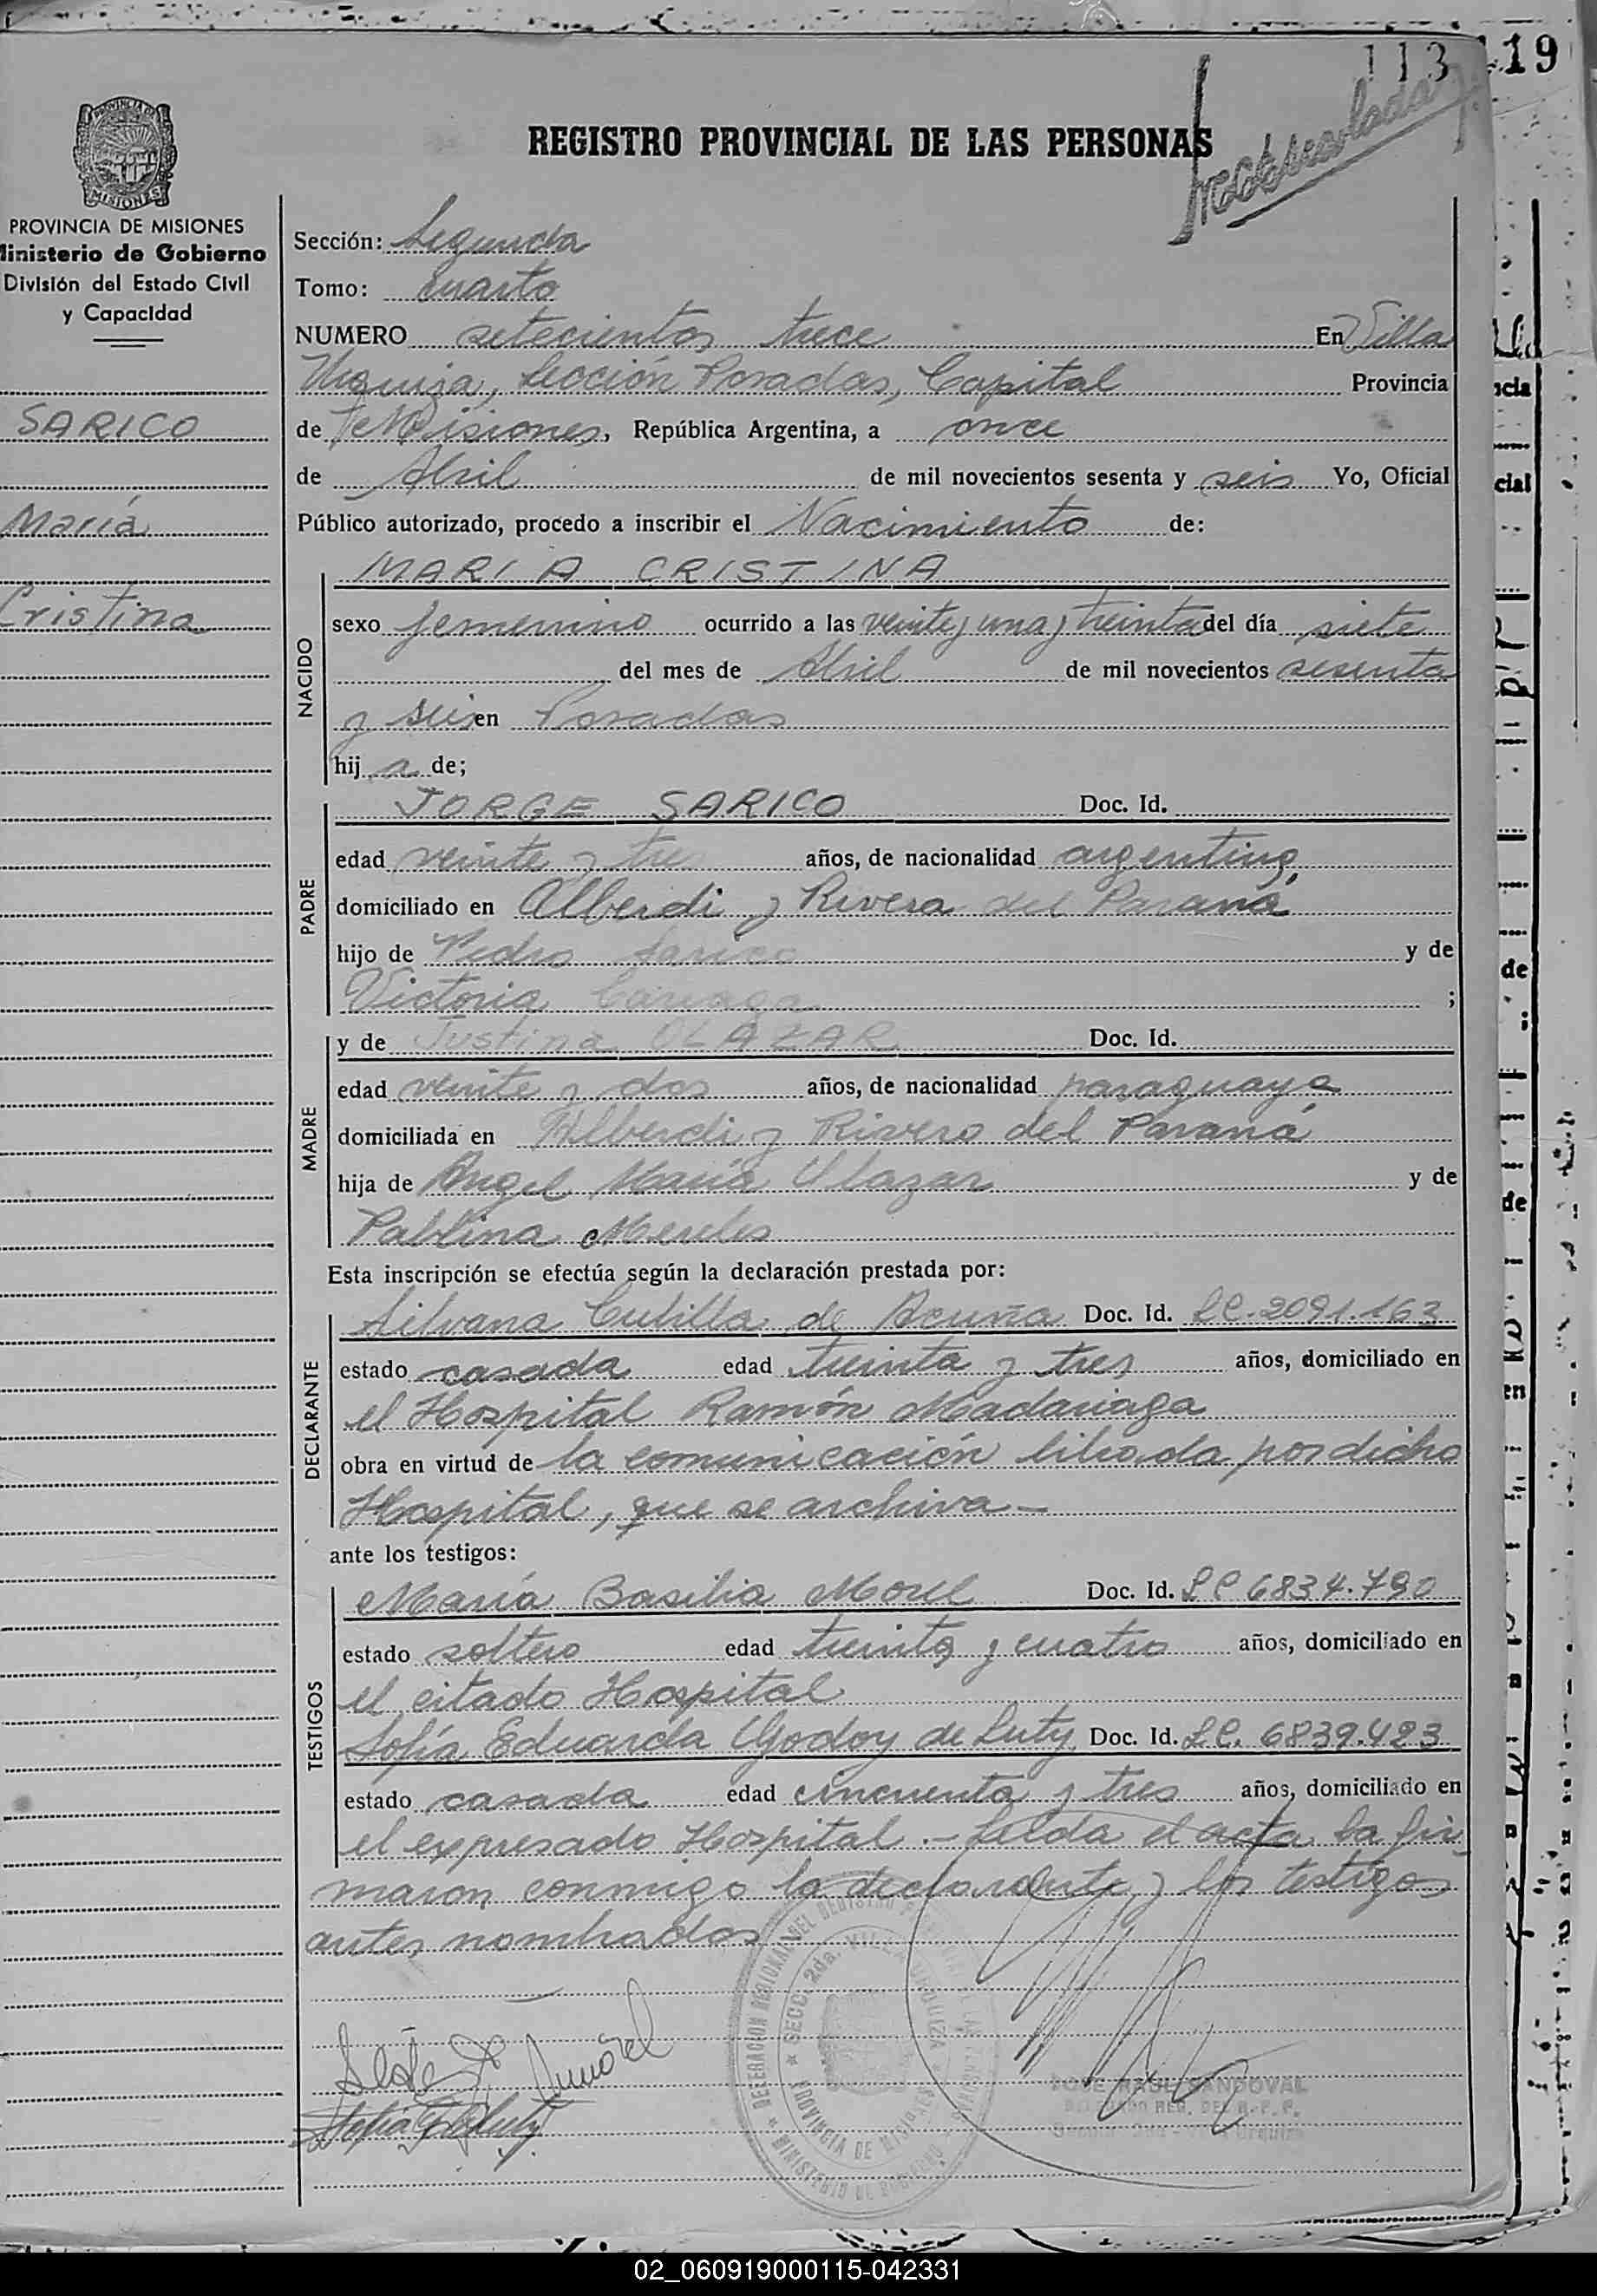 113
19
REGISTRO PROVINCIAL DE LAS PERSONAS
PROVINCIA DE MISIONES
Ministerio de Gobierno
División del Estado Civil
y Capacidad
SARICO
María
Cristina
Sección: Segunda
Tomo: Cuarto
NUMERO setecientos trece En Villa
Urquiza, Sección Posadas, Capital Provincia
de Misiones, República Argentina, a once
de Abril de mil novecientos sesenta y seis Yo, Oficial
Público autorizado, procedo a inscribir el Nacimiento de:
NACIDO
MARIA CRISTINA
sexo femenino ocurrido a las veinte y una y treinta del día siete
del mes de Abril de mil novecientos sesenta
y seis en Posadas
hij a de;
PADRE
JORGE SARICO Doc. Id.
edad veinte y tres años, de nacionalidad argentino,
domiciliado en Alberdi y Rivera del Paraná
hijo de Pedro Sarico y de
Victoria ;
MADRE
y de Justina OLAZAR Doc. Id.
edad veinte y dos años, de nacionalidad paraguaya
domiciliada en Alberdi y Rivera del Paraná
hija de Angel María Olazar y de
Pablina Mereles
Esta inscripción se efectúa según la declaración prestada por:
DECLARANTE
Silvana Cubilla de Acuña Doc. Id. LC. 2091.163
estado casada edad treinta y tres años, domiciliado en
el Hospital Ramón Madariaga
obra en virtud de la comunicación librada por dicho
Hospital, que se archiva –
ante los testigos:
TESTIGOS
María Basilia Morel Doc. Id. LC 6834.790
estado soltero edad treinta y cuatro años, domiciliado en
el citado Hospital
Sofía Eduarda Godoy de Luty Doc. Id. LC. 6839.423
estado casada edad cincuenta y tres años, domiciliado en
el expresado Hospital .– Leída el acta la fir
maron conmigo la declarante y los testigos
antes nombrados
DELEGACION REGIONAL DEL REGISTRO PROVINCIAL DE LAS PERSONAS
SECC. 2da. VILLA URQUIZA
PROVINCIA DE MISIONES
MINISTERIO DE GOBIERNO
JOSE RAUL SANDOVAL
02_060919000115-042331